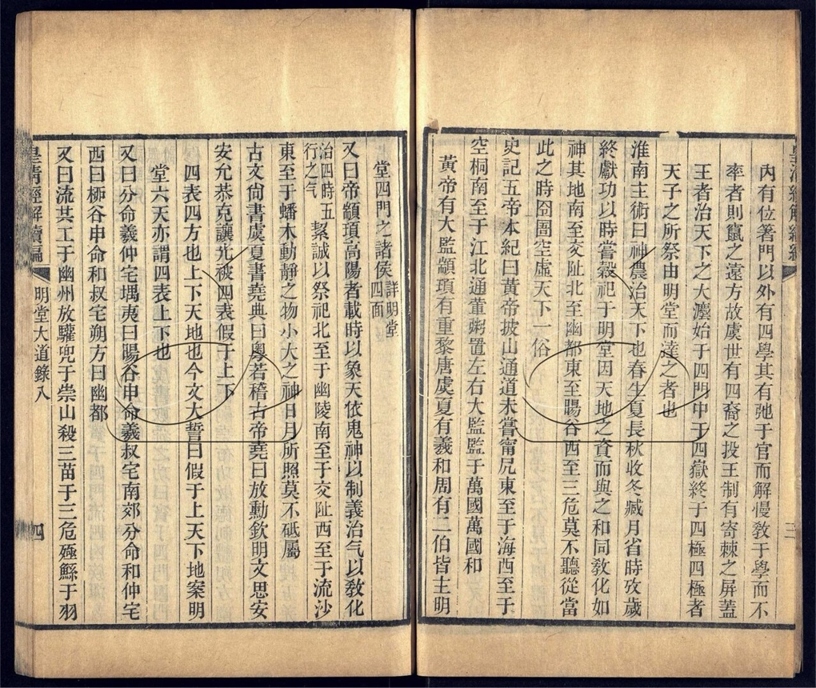 皇清經解續編
三
內有位著門以外有四學其有弛于官而解慢敎于學而不
率者則竄之遠方故虞世有四裔之投王制有寄棘之屏蓋
王者治天下之大灋始于四門中于四嶽終于四極四極者
天子之所祭由明堂而達之者也
淮南主術曰神農治天下也春生夏長秋收冬臧月省時攷歲
終獻功以時嘗穀祀于明堂因天地之資而與之和同敎化如
神其地南至交阯北至幽都東至暘谷西至三危莫不聽從當
此之時囹圄空虛天下一俗
史記五帝本紀曰黃帝披山通道未嘗甯凥東至于海西至于
空桐南至于江北逐董粥置左右大監監于萬國萬國和
黃帝有大監顓頊有重黎唐虞夏有羲和周有二伯皆主明
堂四門之諸侯詳明堂四面
又曰帝顓頊高陽者載時以象天依鬼神以制義治气以敎化
治四時五行之气絜誠以祭祀北至于幽陵南至于交阯西至于流沙
東至于蟠木動靜之物小大之神日月所照莫不砥屬
古文尙書虞夏書堯典曰粵若稽古帝堯曰放勳欽明文思安
安允恭克讓光被四表假于上下
四表四方也上下天地也今文大誓曰假于上天下地案明
堂六天亦謂四表上下也
又曰分命羲仲宅堣夷曰暘谷申命羲叔宅南郊分命和仲宅
西曰桺谷申命和叔宅朔方曰幽都
又曰流共工于幽州放驩兜于崇山殺三苗于三危殛鯀于羽
皇淸經解續編
明堂大道錄八
四